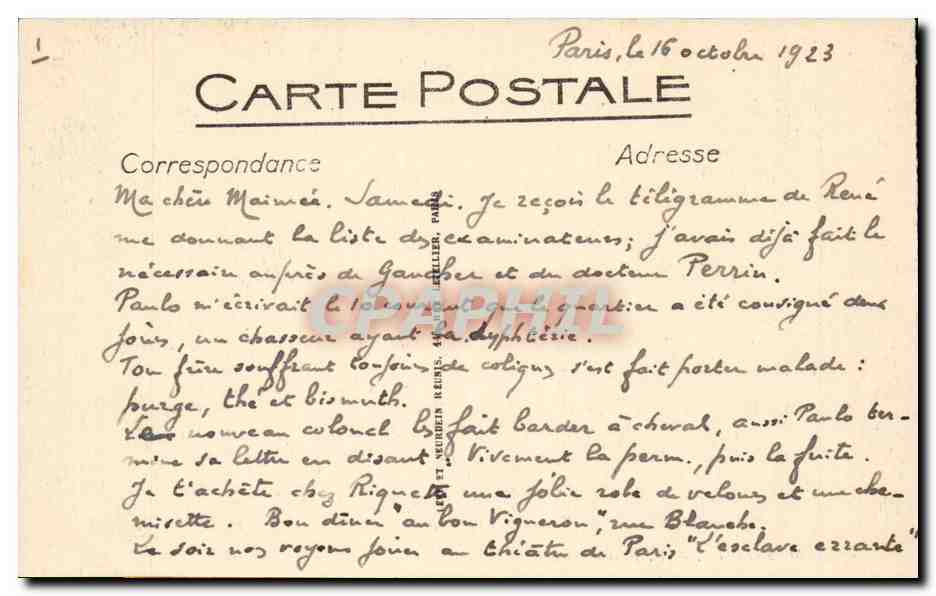 1
Paris, le 16 octobre 1923
CARTE POSTALE
Correspondance
Adresse
Ma chère Maimée. Samedi. Je reçois le télégramme de René
me donnant la liste des examinateurs; j'avais déjà fait le
nécessaire auprès de Gaucher et du docteur Perrin.
Paulo m'écrivait le 10 courant que le quartier a été consigné deux
jours, un chasseur ayant la dyphtérie.
Ton frère souffrant toujours de coliques s'est fait porter malade :
purge, thé et bismuth.
Le nouveau colonel les fait barder à cheval, aussi Paulo ter-
mine sa lettre en disant "Vivement la perm., puis la fuite.
Je t'achète chez une jolie robe de velours et une che-
misette. Bon dîner "au bon Vigneron", rue Blanche.
Le soir nos voyons jouer au théâtre de Paris "L'esclave errante"
LÉVY ET NEURDEIN RÉUNIS, 44, RUE LETELLIER, PARIS
CPAPHIL